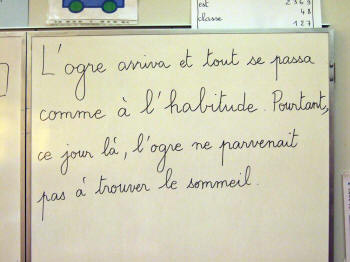 est 2363
48
classe 127
L'ogre arriva et tout se passa
comme à l'habitude. Pourtant,
ce jour là, l'ogre ne parvenait
pas à trouver le sommeil.